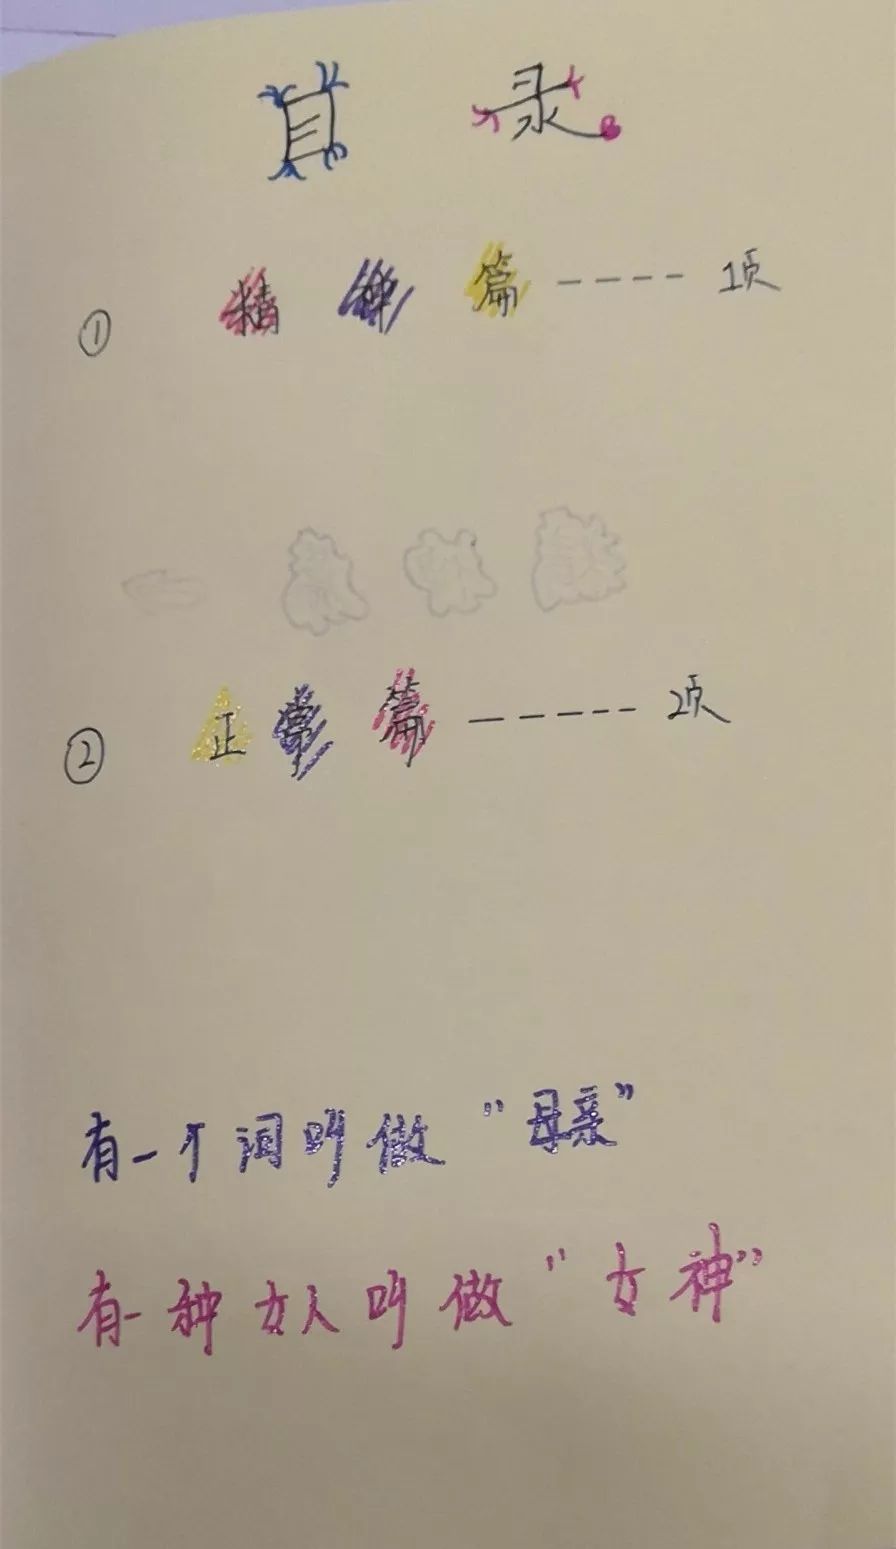 目录
① 精神篇 ---- 1页
② 正常篇 ----- 2页
有一个词叫做“母亲”
有一种女人叫做“女神”